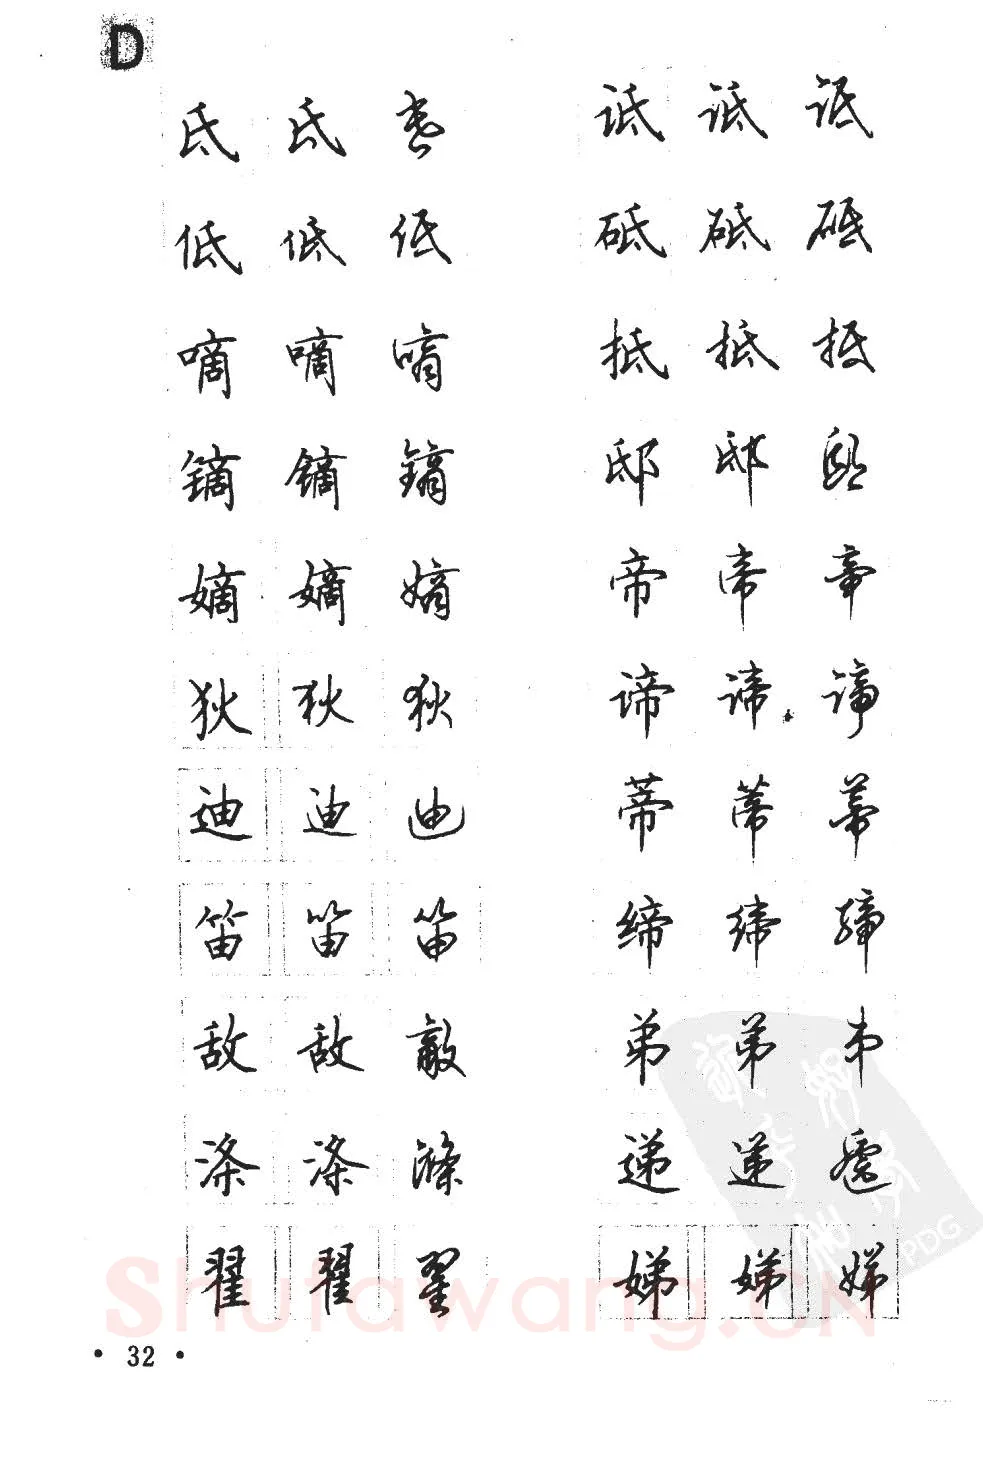 D
氐 氐 氐 诋 诋 诋
低 低 低 砥 砥 砥
嘀 嘀 嘀 抵 抵 抵
镝 镝 镝 邸 邸 邸
嫡 嫡 嫡 帝 帝 帝
狄 狄 狄 谛 谛 谛
迪 迪 迪 蒂 蒂 蒂
笛 笛 笛 缔 缔 缔
敌 敌 敵 弟 弟 弟
涤 涤 滌 递 递 遞
翟 翟 翟 娣 娣 娣
Shufawang.CN
PDG
• 32 •